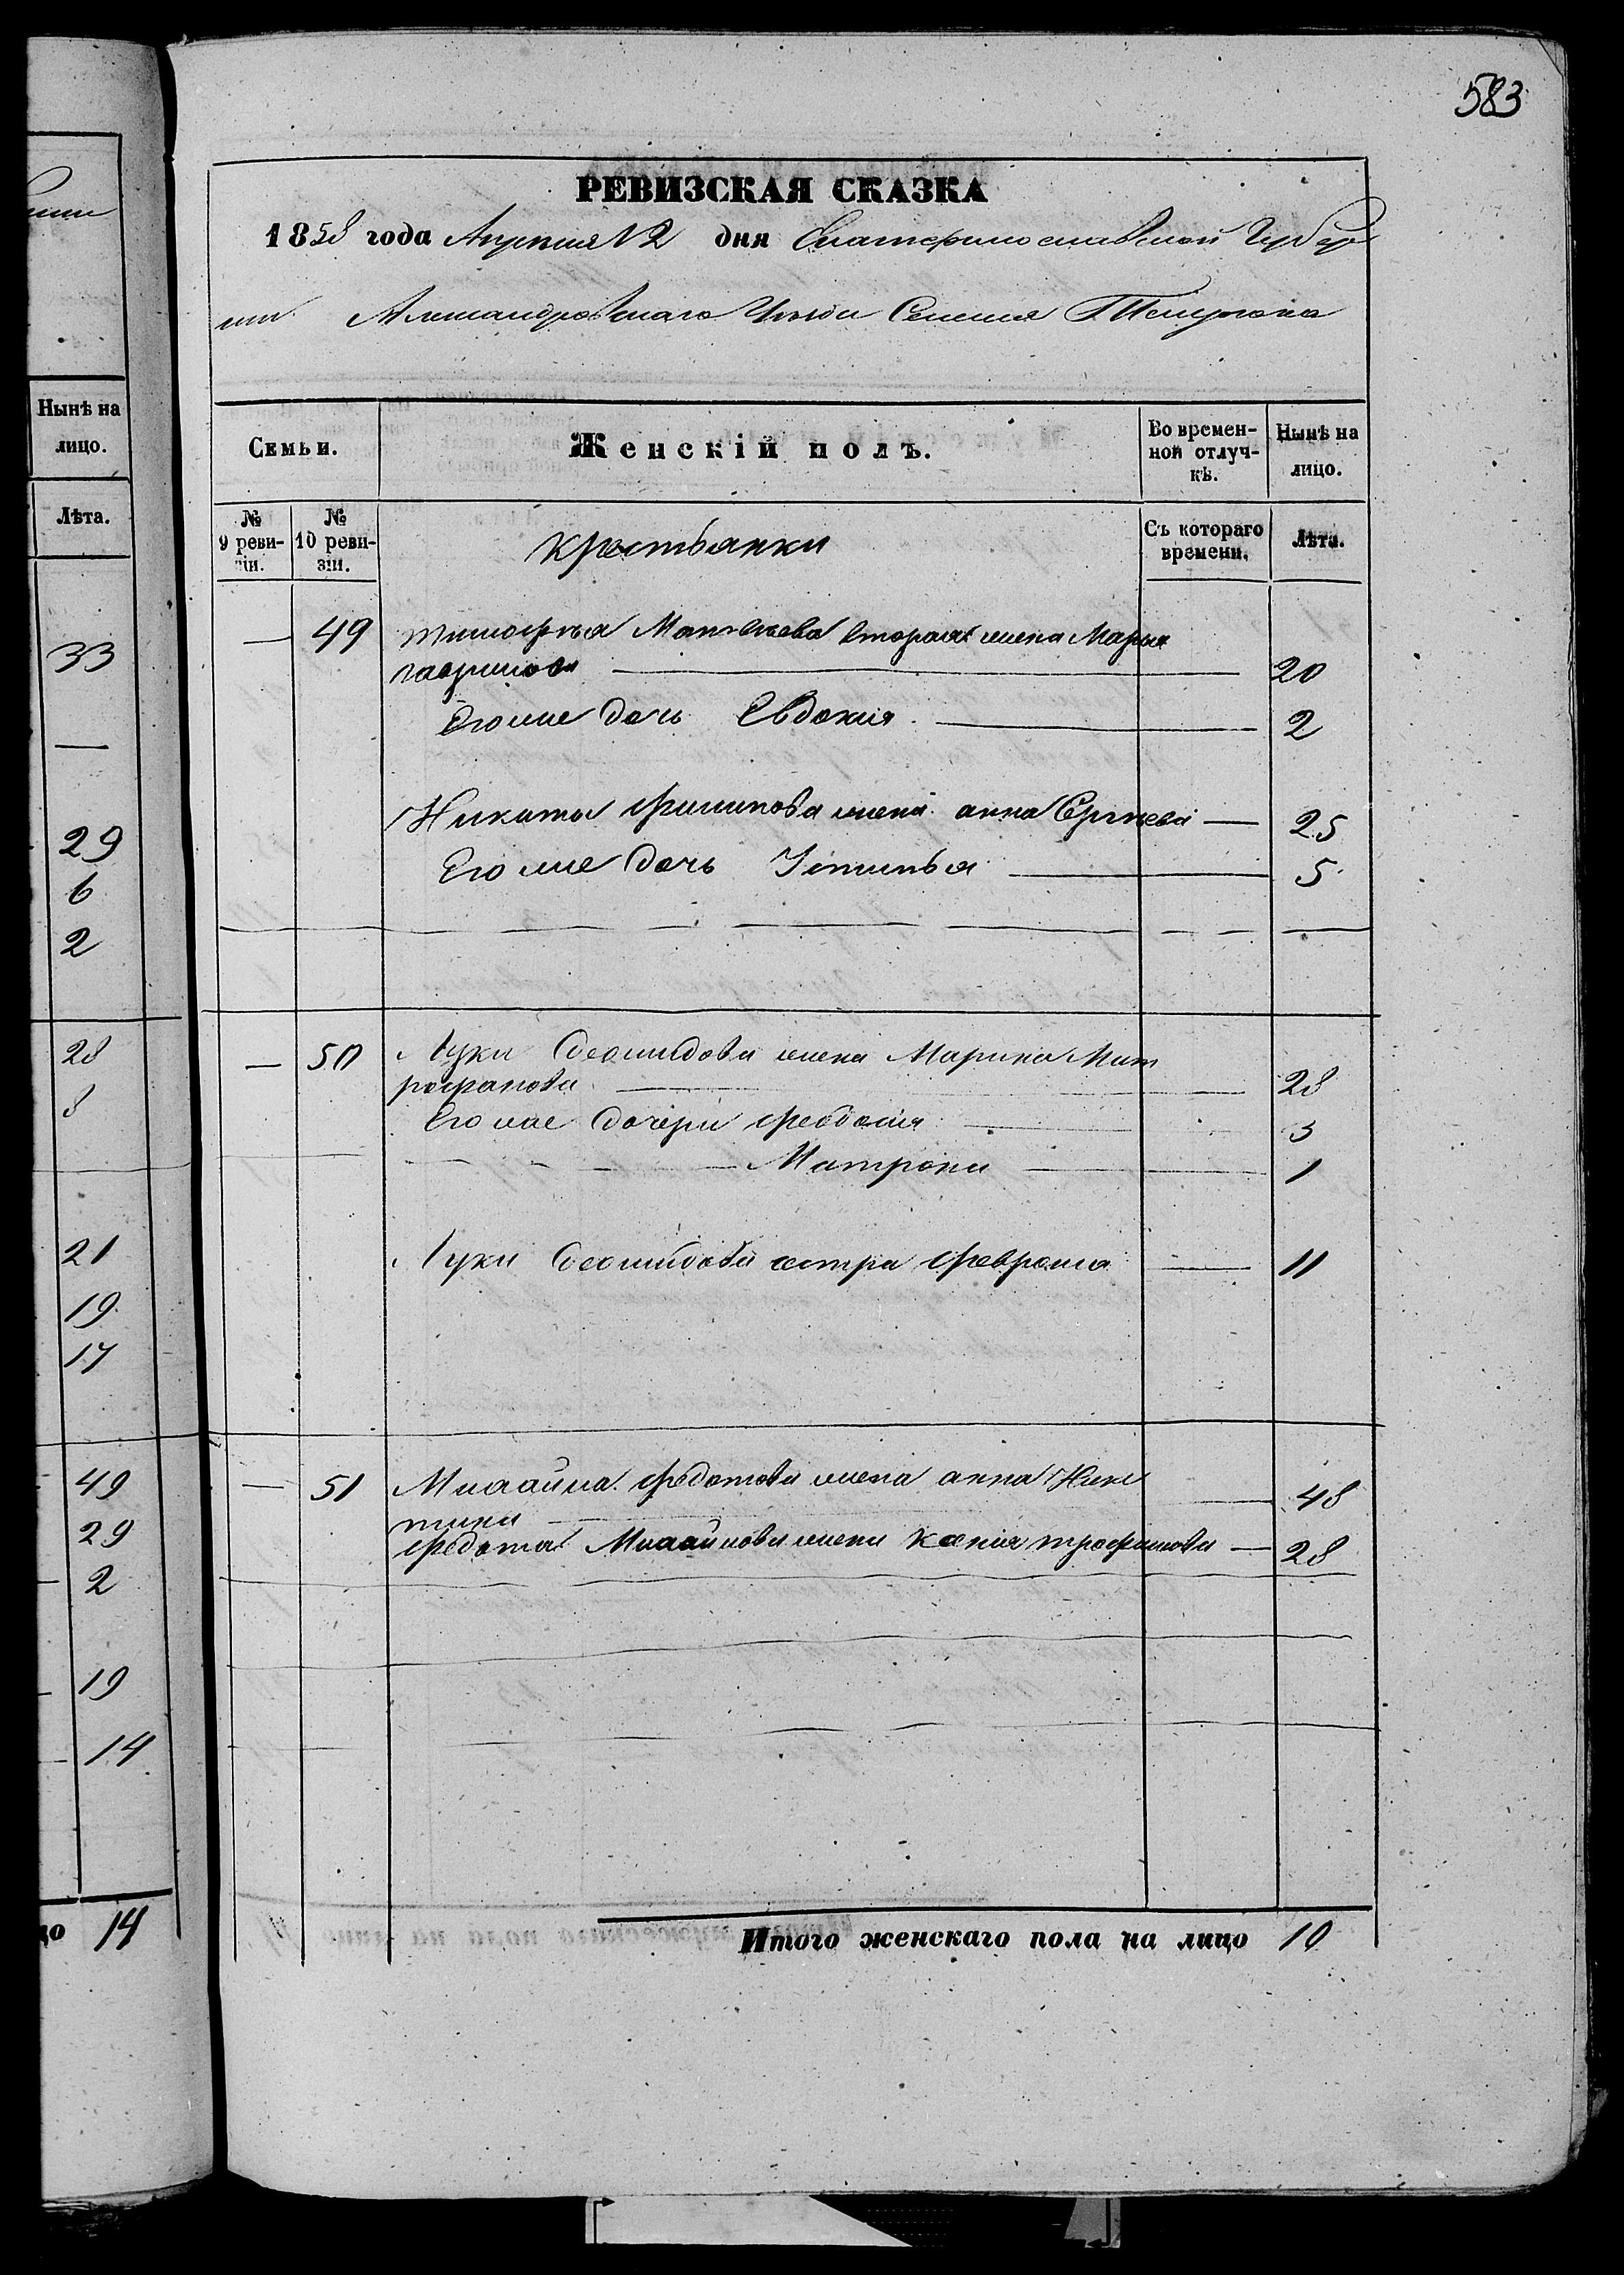 583
РЕВИЗСКАЯ СКАЗКА
1858 года Апреля 12 дня Екатеринославской Губер
нии Александровскаго Уезда Селения Темрюка
Нынѣ на
лицо.
Лѣта.
33
—
29
6
2
28
8
21
19
17
49
29
2
19
14
цо 14
Семьи. Женскій полъ. Во времен-
ной отлуч-
кѣ. Нынѣ на
лицо.
№
9 реви-
зіи. №
10 реви-
зіи. Крестьянки Съ котораго
времени. Лѣта.
— 49 Тимофея Матвеева вторая жена Марья
гаврилова — 20
Его же дочь Евдокия — 2
Никиты филипова жена анна Сергеева — 25
Его же дочь Устинья — 5
— 50 Луки Леонидова жена Марина Мит
рофанова — 28
Его же дочери Феодосия — 3
— Матрона — 1
Луки сестра Феврония — 11
— 51 Михайла федотова жена анна Ники
тина — 48
федота Михайлова жена Ксения трофимова — 28
Итого женскаго пола на лицо 10